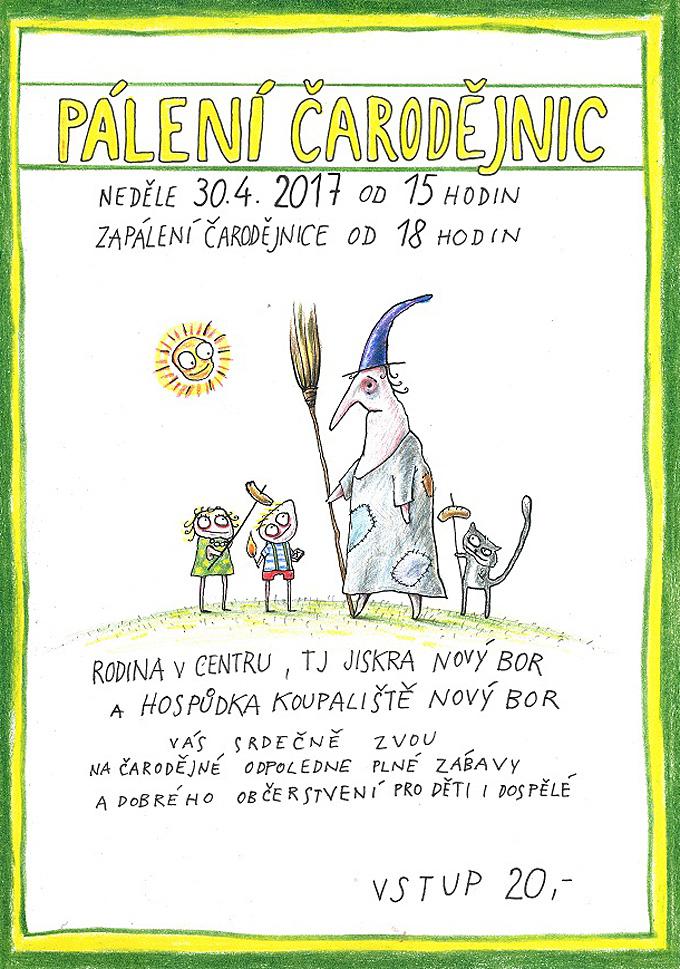 PÁLENÍ ČARODĚJNIC
NEDĚLE 30.4. 2017 OD 15 HODIN
ZAPÁLENÍ ČARODĚJNICE OD 18 HODIN
RODINA V CENTRU, TJ JISKRA NOVÝ BOR
A HOSPŮDKA KOUPALIŠTĚ NOVÝ BOR
VÁS SRDEČNĚ ZVOU
NA ČARODĚJNÉ ODPOLEDNE PLNÉ ZÁBAVY
A DOBRÉHO OBČERSTVENÍ PRO DĚTI I DOSPĚLÉ
VSTUP 20,-